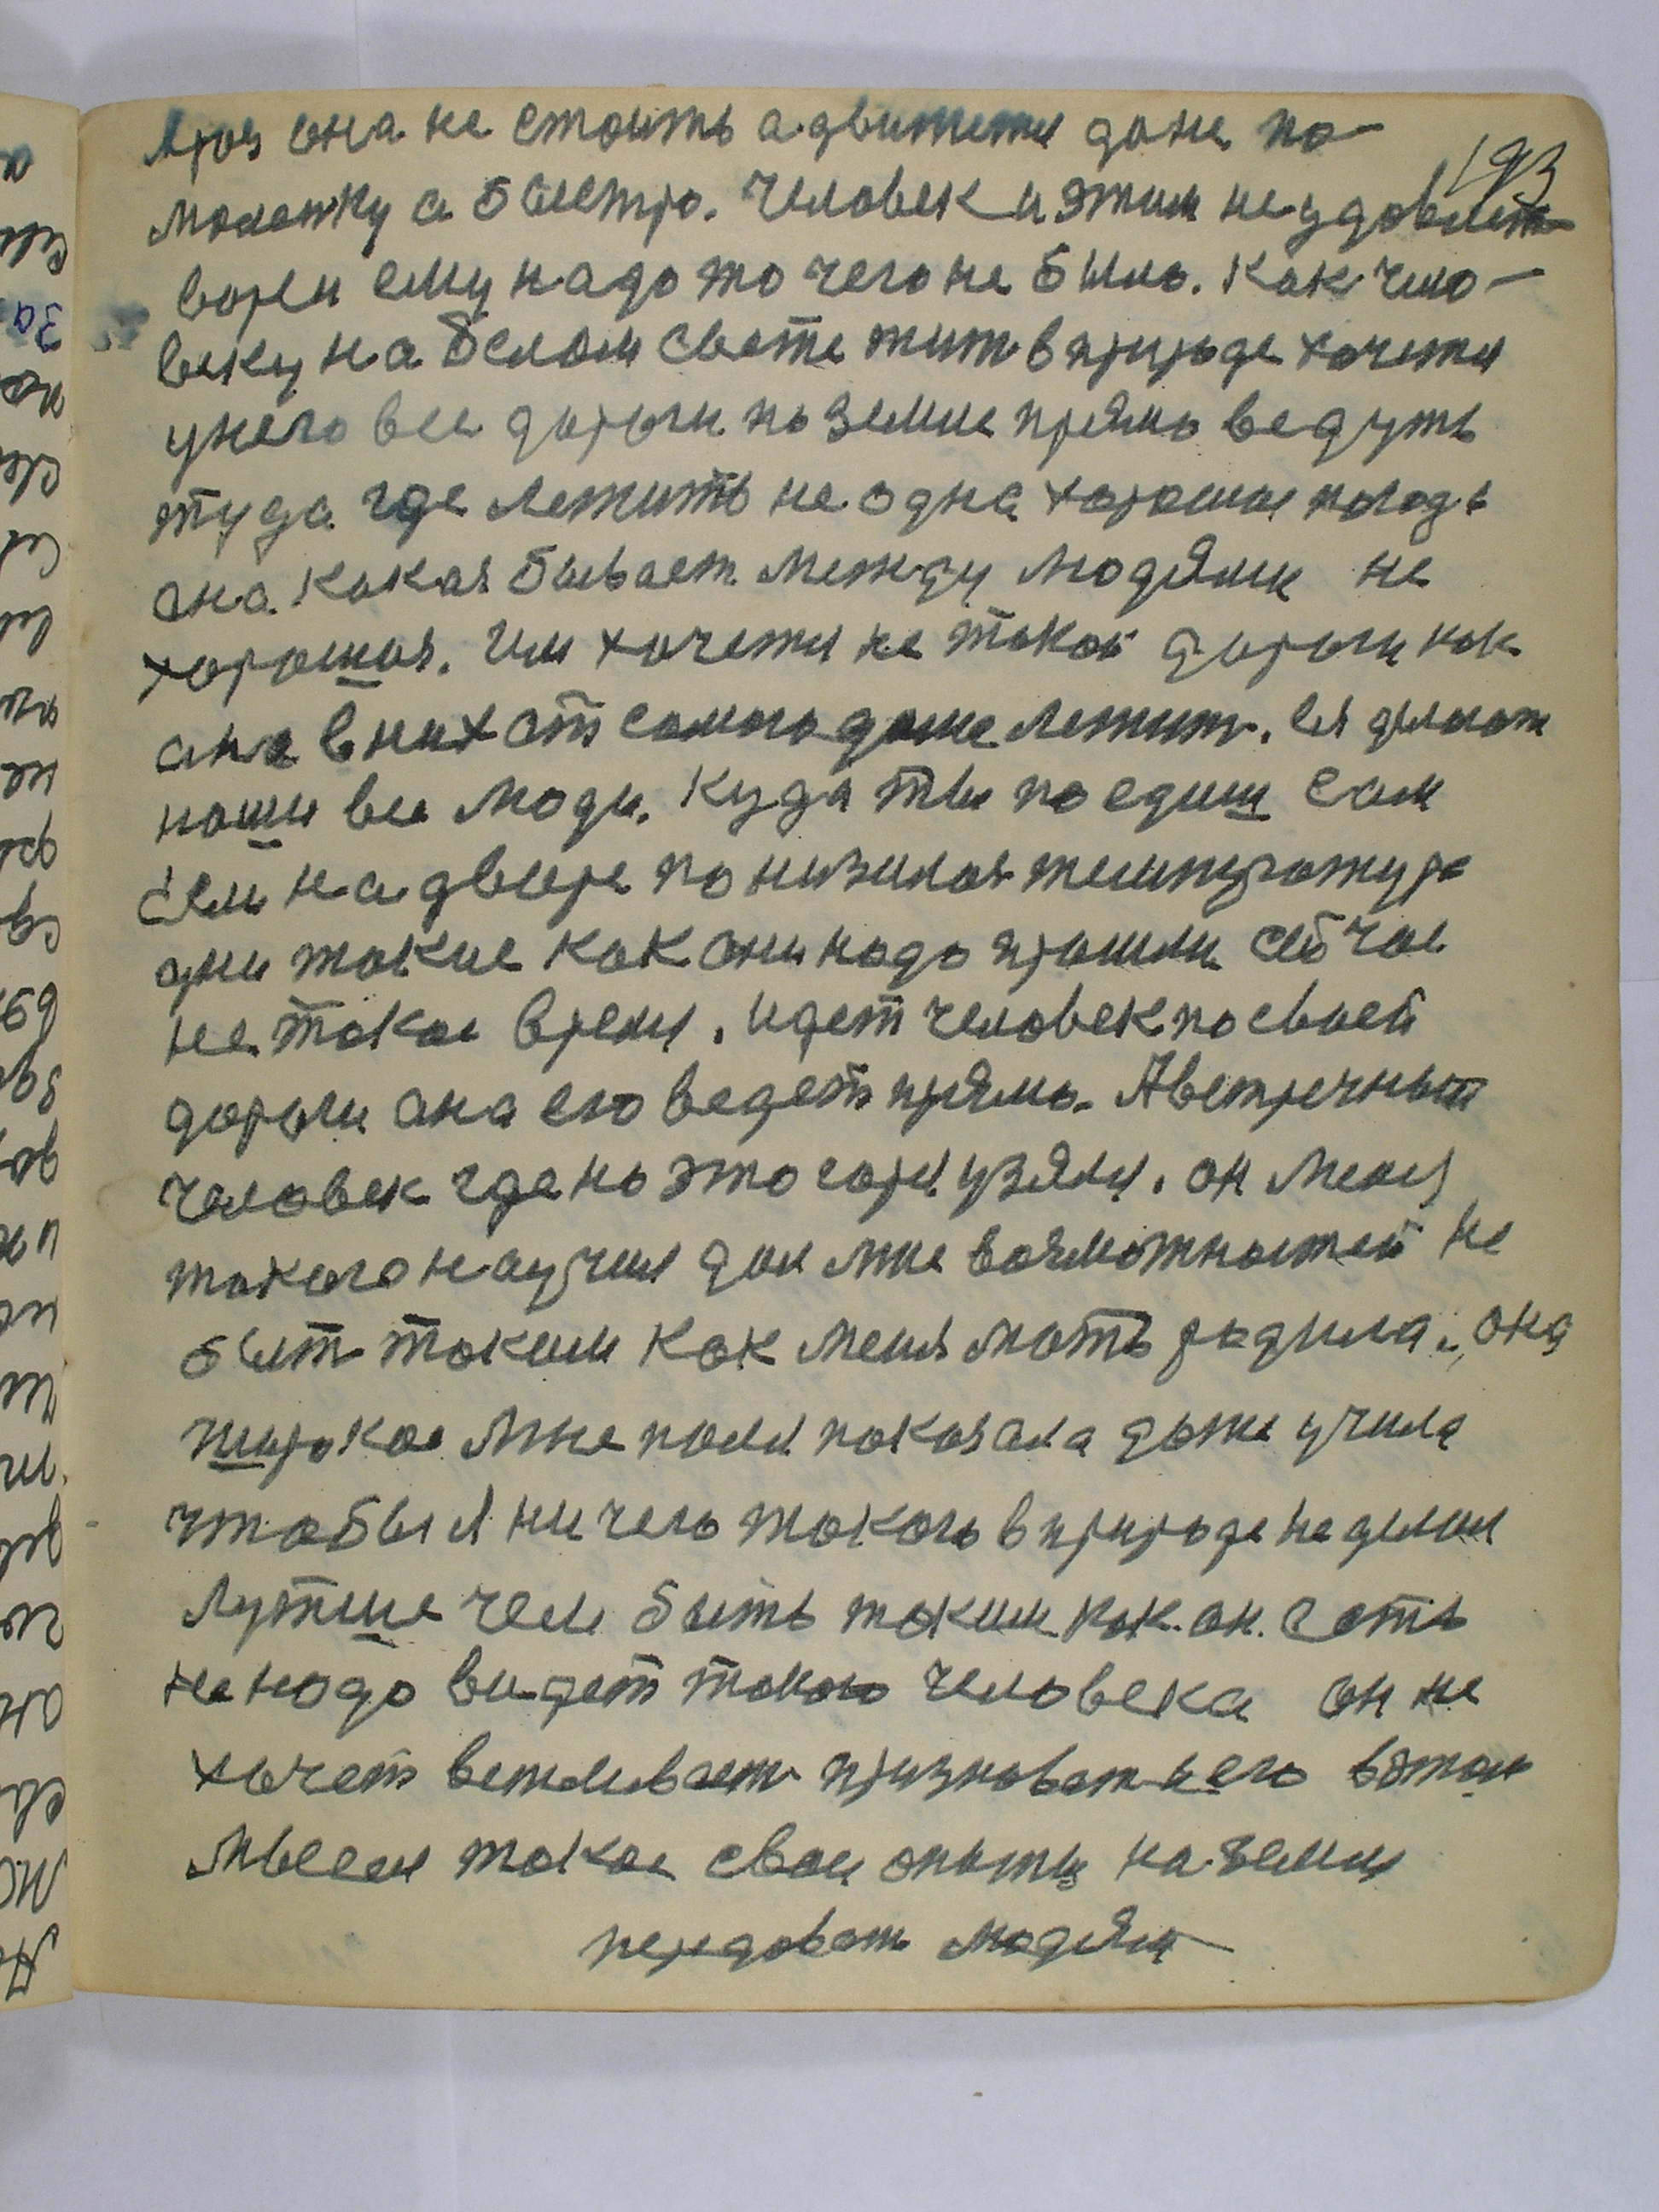 она не стоить а движется даже по-
193
маленку а быстро. Человек и этим не удовлет
ворен ему надо то чего не было. Как чело-
веку на белом свете жить в природе хочется
у него все дороги по земле прямо ведуть
туда где лежить не одна хорошая погода
она какая бывает между людями не
хорошая. Им хочется не такой дороги как
она в них от самого дома лежит. Ея делают
наши все люди. Куда ты поедиш сам
если на дворе понизилая температура
они такие как они надо прошли сейчас
не такое время. Идет человек по своей
дороги она его ведет прямо. А встречный
человек где но это горя узялся. он меня
такого научил дал мне возможностей не
быть таким как меня мать родила. она
широкое мне поля показала даже учила
чтобы я ничего такого в природе не делал
Лутше чем быть таким как он есть
не надо видеть такого человека он не
хочеть признавать его
мысля такое свои опыты на земли
передовать людям